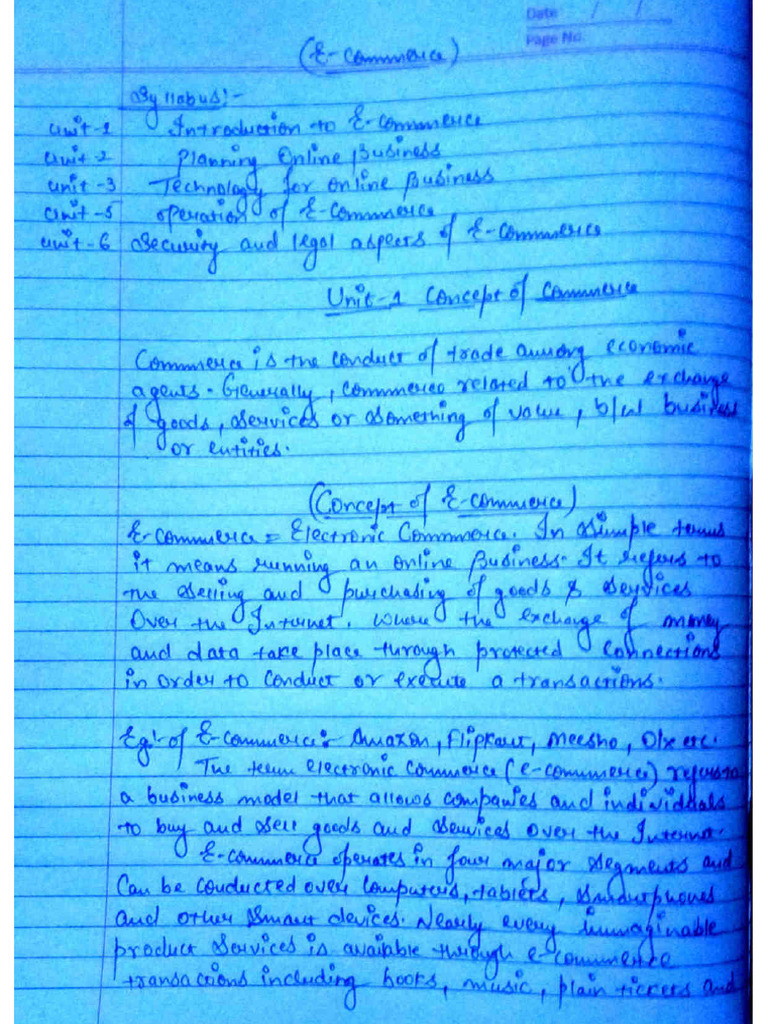 Date / /
Page No.
(E-Commerce)
Syllabus:-
Unit-1 Introduction to E-commerce
Unit-2 Planning Online Business
Unit-3 Technology for online Business
Unit-5 operation of E-Commerce
Unit-6 Security and legal aspects of E-Commerce
Unit-1 Concept of Commerce
Commerce is the conduct of trade among economic
agents. Generally, commerce related to the exchange
of goods, services or something of value, b/w business
or entities.
(Concept of E-commerce)
E-commerce = Electronic Commerce. In Simple terms
it means running an online Business. It refers to
the selling and purchasing of goods & services
Over the Internet. Where the exchange of money
and data take place through protected Connections
in order to Conduct or execute a transactions.
Eg:- of E-commerce:- Amazon, Flipkart, Meesho, Olx etc.
The term electronic commerce (e-commerce) refers to
a business model that allows companies and individuals
to buy and sell goods and services over the Internet.
E-commerce operates in four major segments and
Can be conducted over Computers, tablets, Smartphones
and other Smart devices. Nearly every immaginable
product services is available through e-commerce
transactions including books, music, plain tickets and